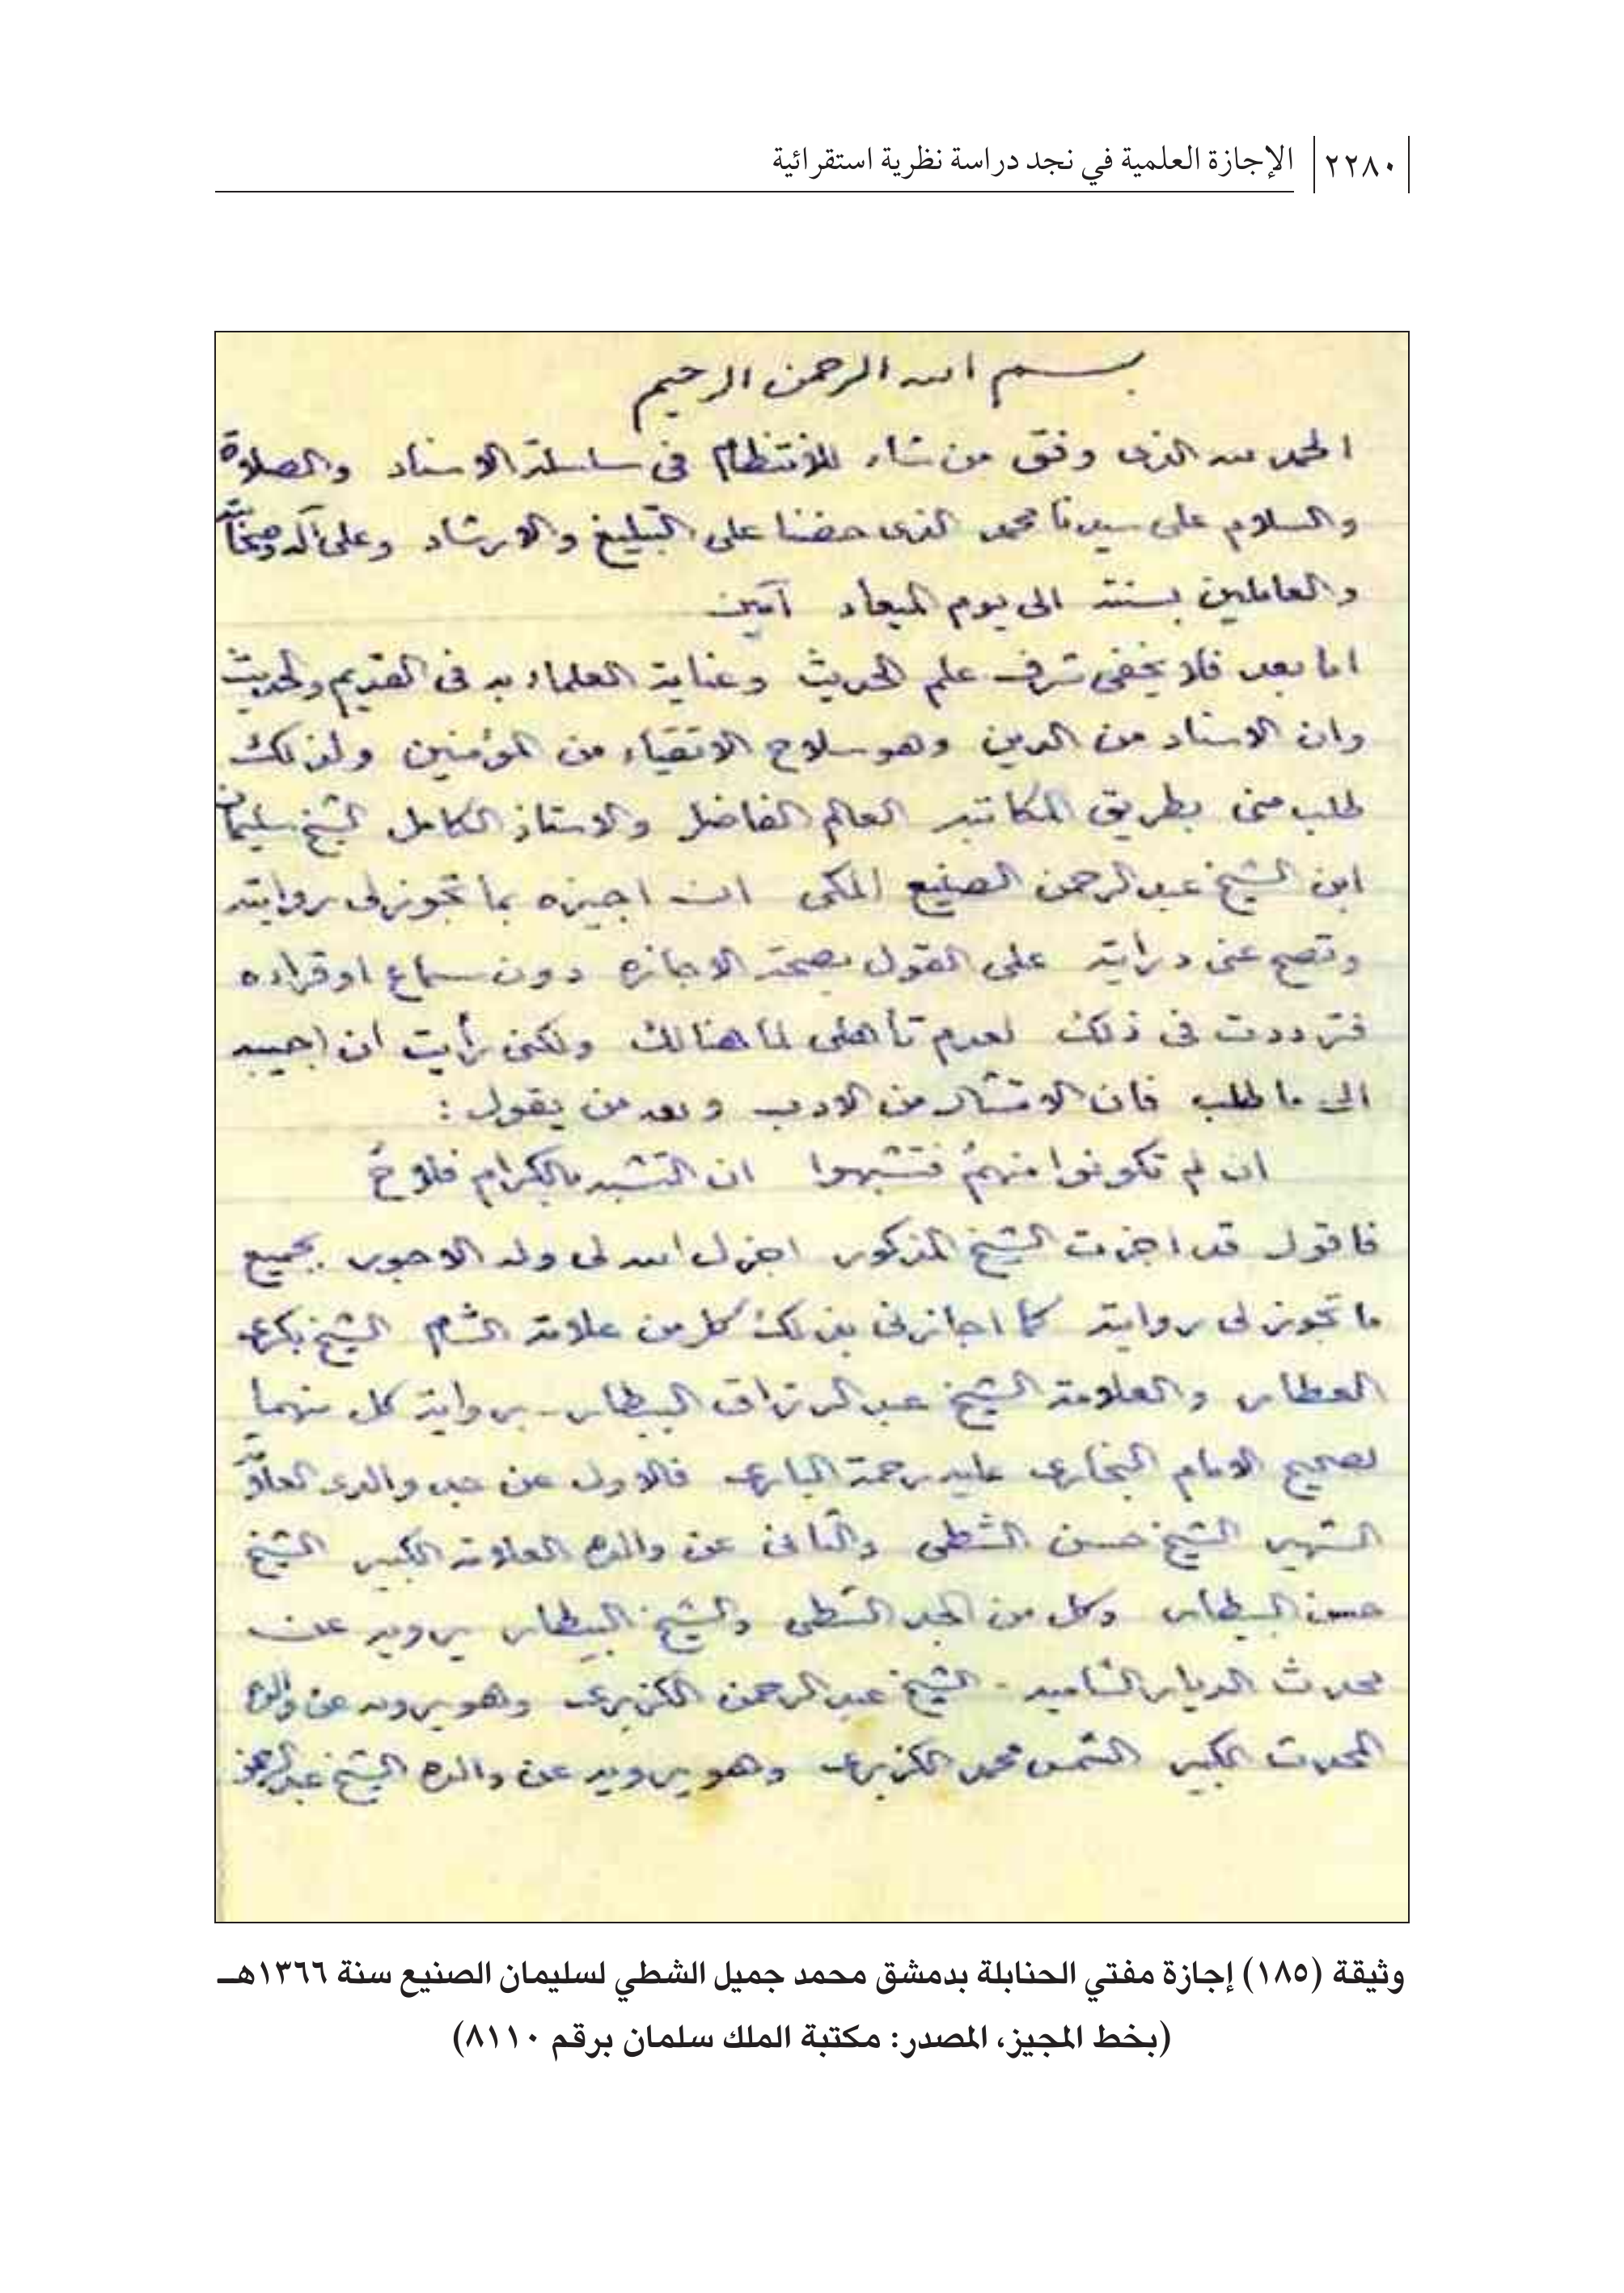 ٢٢٨٠ الإجازة العلمية في نجد دراسة نظرية استقرائية
بسم الله الرحمن الرحيم
الحمد لله الذى وفق من شاء للانتظام فى سلسلة الاسناد والصلاة
والسلام على سيدنا محمد الذى حضنا على التبليغ والارشاد وعلى آله وصحابته
والعاملين بسنته الى يوم الميعاد آمين
اما بعد فلا يخفى شرف علم الحديث وعناية العلماء به فى القديم والحديث
وان الاسناد من الدين وهو سلاح الاتقياء من المؤمنين ولذلك
طلب منى بطريق المكاتبه العالم الفاضل والاستاذ الكامل الشيخ سليمان
ابن الشيخ عبدالرحمن الصنيع المكى ان اجيزه بما تجوز لى روايته
وتصح عنى درايته على القول بصحة الاجازه دون سماع او قراءه
فترددت فى ذلك لعدم تأهلى لما هنالك ولكنى رأيت ان اجيبه
الى ما طلب فان الامتثال من الادب ولله من يقول :
ان لم تكونوا منهمُ فتشبهوا ان التشبه بالكرام فلاحُ
فاقول قد اجزت الشيخ المذكور اجزل الله لى وله الاجور بجميع
ما تجوز لى روايته كما اجازنى بذلك كل من علامة الشام الشيخ بكرى
العطار والعلامة الشيخ عبد الرزاق البيطار برواية كل منهما
لصحيح الامام البخارى عليه رحمة البارى فالاول عن جد والدى العلامة
الشهير الشيخ حسن الشطى والثانى عن والده العلامة الكبير الشيخ
حسن البيطار وكل من الجد الشطى والشيخ البيطار يرويه عن
محدث الديار الشاميه الشيخ عبد الرحمن الكزبرى وهو يرويه عن والده
المحدث الكبير الشمس محمد الكزبرى وهو يرويه عن والده الشيخ عبد الرحمن
وثيقة (١٨٥) إجازة مفتي الحنابلة بدمشق محمد جميل الشطي لسليمان الصنيع سنة ١٣٦٦هـ
(بخط المجيز، المصدر: مكتبة الملك سلمان برقم ٨١١٠)